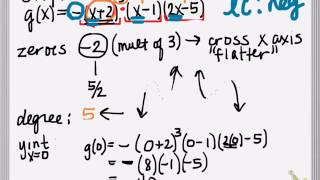 LC: neg
g(x) = -(x+2)³(x-1)(2x-5)
zeroes (-2) (mult of 3) → cross x axis
"flatter"
5/2
degree: 5
y int x=0 g(0) = -(0+2)³(0-1)(2(0)-5)
= -(8)(-1)(-5)